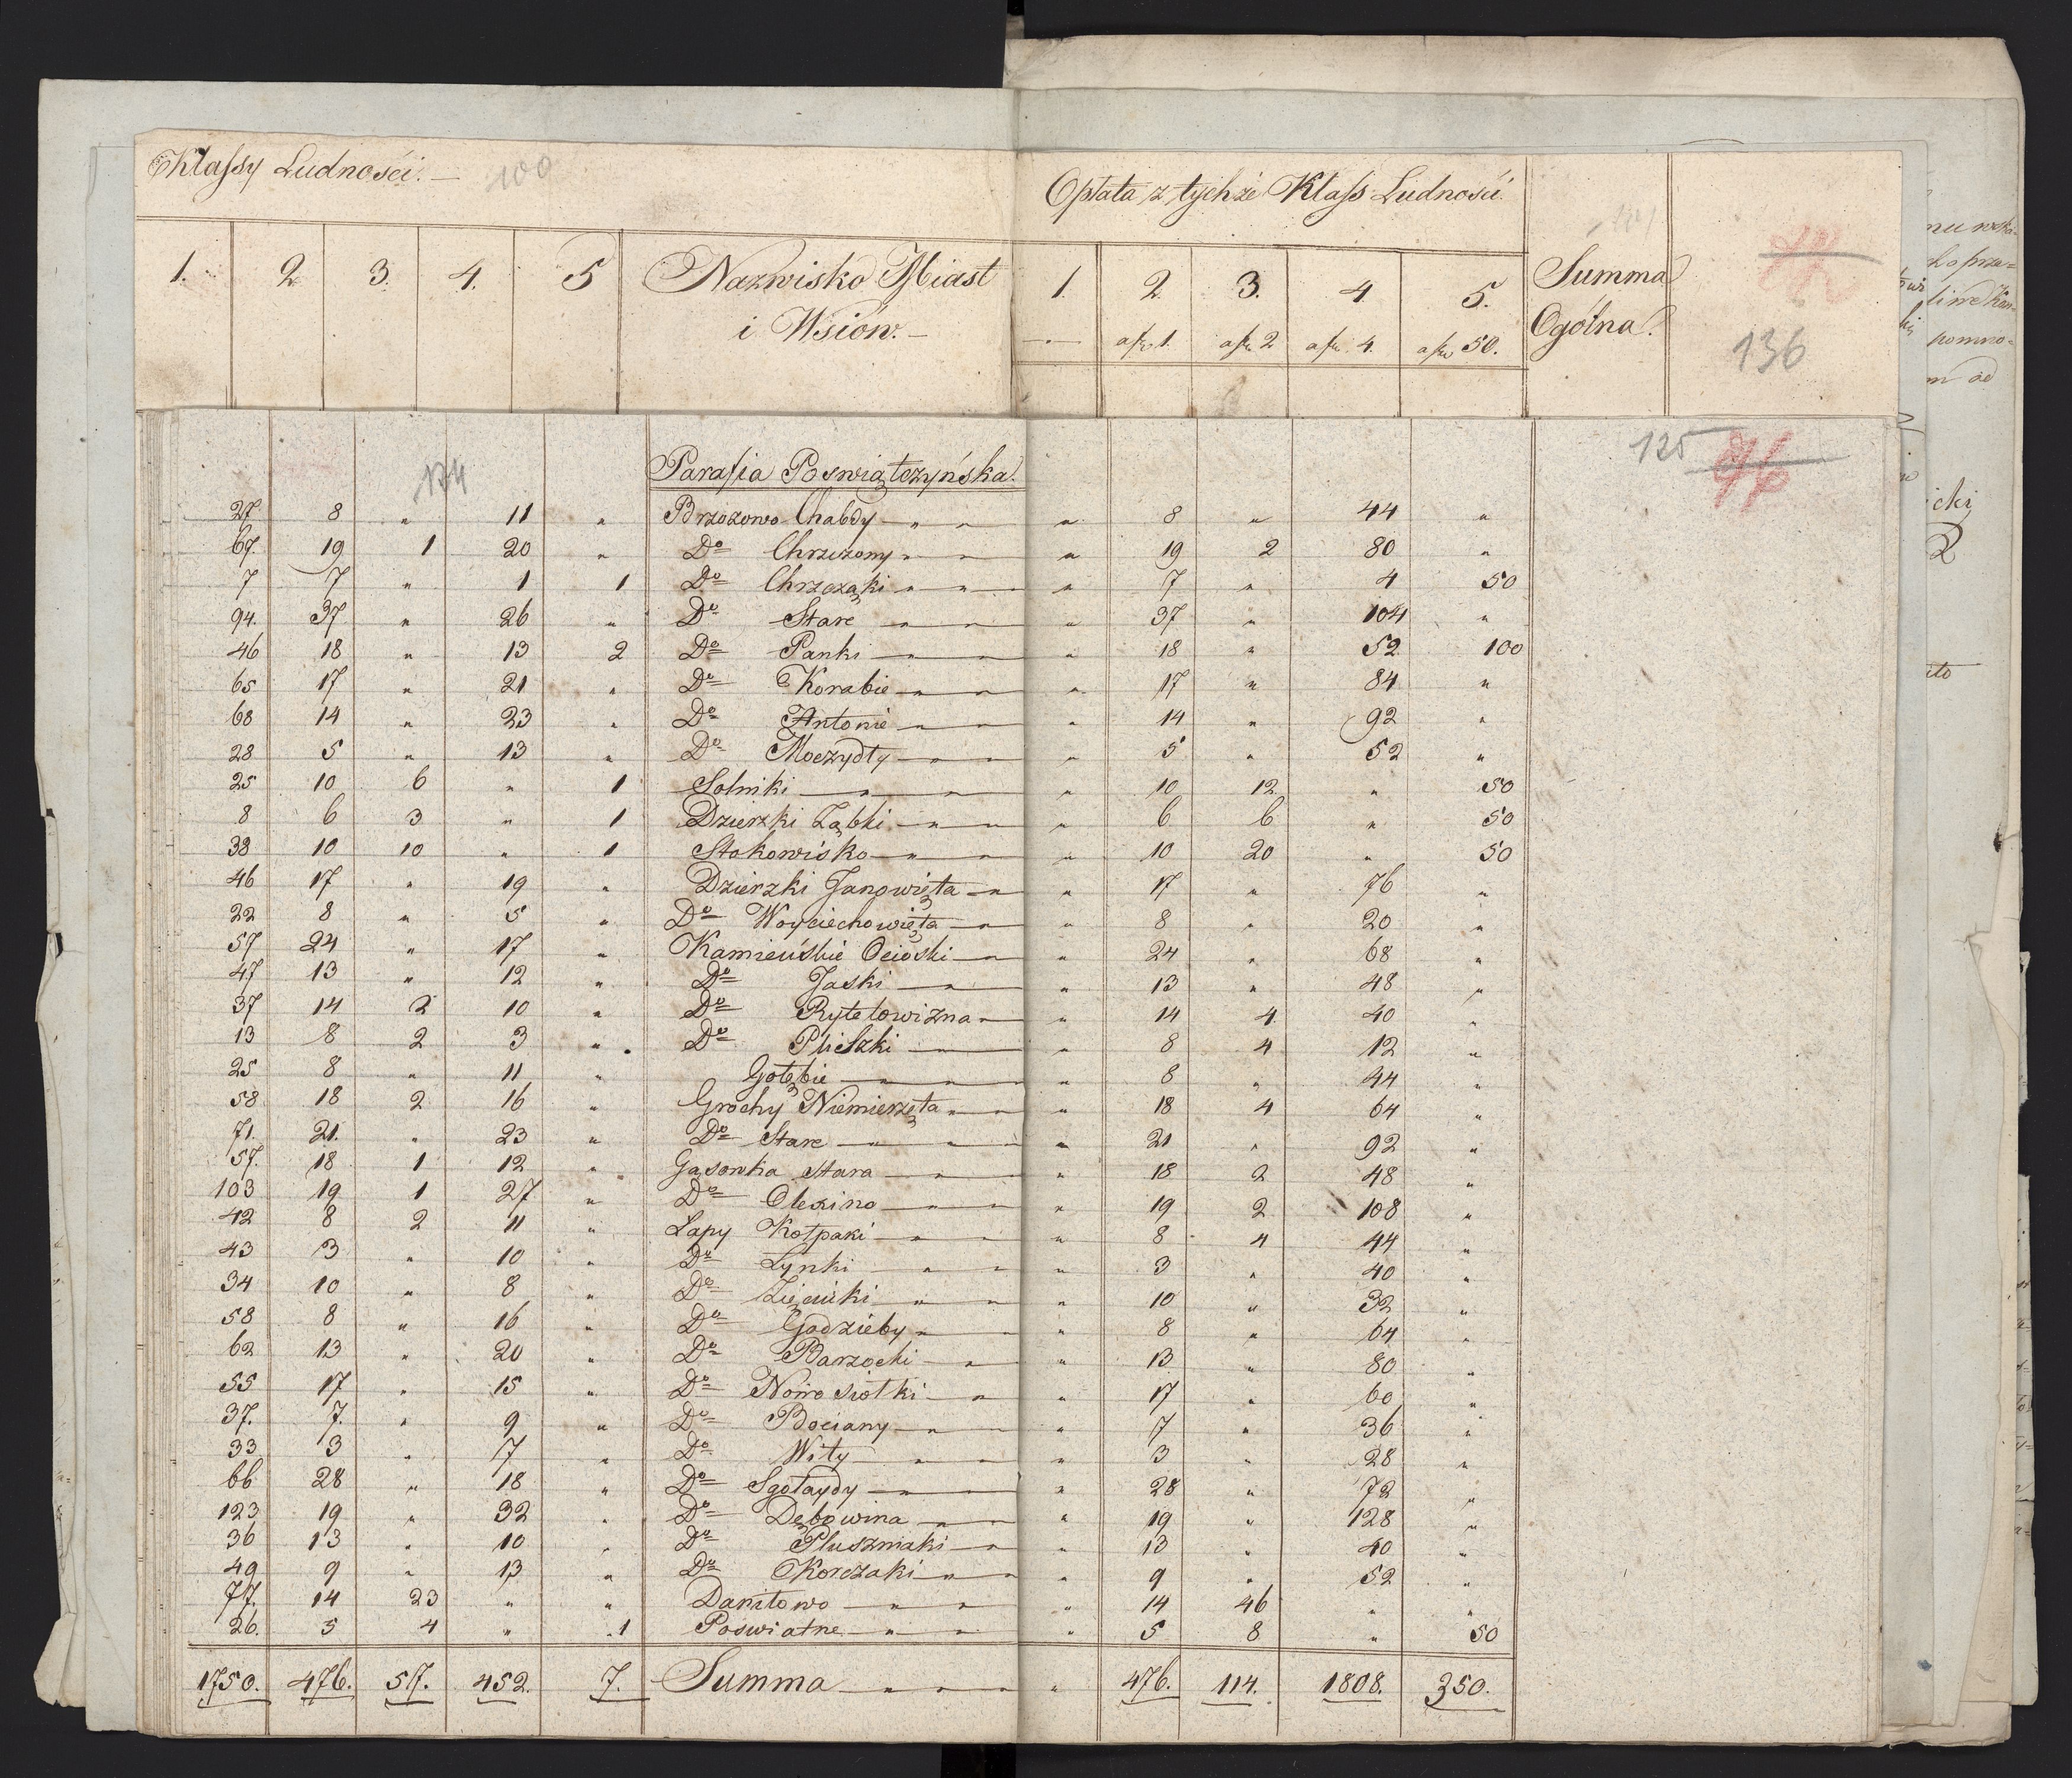 Klassy Ludności. — 100
Opłata z tychże Klass Ludności
1. 2 3. 4. 5 Nazwisko Miast i Wsiów. — 1. 2. 3. 4 5. Summa Ogólna.
a fl 1. a fl 2 a fl 4. a fl 50.
136
125 76
174
Parafia Poswiątczyńska.
27. 8 „ 11 „ Brzozowo Chabdy „ „ „ 8 „ 44 „
67. 19 1 20 „ Do Chrzczony „ „ „ 19 2 80 „
7 7 „ 1 1 Do Chrzcząki „ „ „ 7 „ 4 50
94. 37 „ 26 „ Do Stare „ „ „ 37 „ 104 „
46 18 „ 13 2 Do Panki „ „ „ 18 „ 52 100
65 17 „ 21 „ Do Korabie „ „ „ 17 „ 84 „
68 14 „ 23 „ Do Antonie „ „ „ 14 „ 92 „
28 5 „ 13 „ Do Moczydły „ „ „ 5 „ 52 „
25 10 6 „ 1 Solniki „ „ „ 10 12 „ 50
8 6 3 „ 1 Dzierzki Ząbki „ „ „ 6 6 „ 50
38 10 10 „ 1 Stokowisko „ „ „ 10 20 „ 50
46 17 „ 19 „ Dzierzki Janowięta „ „ 17 „ 76 „
22 8 „ 5 „ Do Woyciechowięta „ „ 8 „ 20 „
57 24 „ 17 „ Kamieńskie Ocioski „ „ 24 „ 68 „
47 13 „ 12 „ Do Jaski „ „ 13 „ 48 „
37 14 2 10 „ Do Rytelowizna „ „ 14 4 40 „
13 8 2 3 „ Do Pliszki „ 8 4 12 „
25 8 „ 11 „ Gołębie „ „ „ 8 „ 44 „
58 18 2 16 „ Grochy Niemierzęta „ „ „ 18 4 64 „
71. 21. „ 23 „ Do Stare „ „ „ 21 „ 92 „
57. 18 1 12 „ Gąsowka Stara „ „ „ 18 2 48 „
103 19 1 27 „ Do Olexino „ „ „ 19 2 108 „
42 8 2 11 „ Łapy Kołpaki „ „ „ 8 4 44 „
43 3 „ 10 „ Do Łynki „ „ „ 3 „ 40 „
34 10 „ 8 „ Do Zięciuki „ „ „ 10 „ 32 „
58 8 „ 16 „ Do Goździeby „ „ „ 8 „ 64 „
62 13 „ 20 „ Do Barzochi „ „ 13 „ 80 „
55 17 „ 15 „ Do Nowosiołki „ „ 17 „ 60 „
37. 7. „ 9 „ Do Bociany „ „ „ 7 „ 36 „
33 3 „ 7 „ Do Wity „ „ „ 3 „ 28 „
66 28 „ 18 „ Do Szołaydy „ „ „ 28 „ 72 „
123 19 „ 32 „ Do Dębowina „ „ „ 19 „ 128 „
36 13 „ 10 „ Do Pluszniaki „ „ 13 „ 40 „
49 9 „ 13 „ Do Korczaki „ „ „ 9 „ 52 „
77. 14 23 „ „ Daniłowo „ „ „ 14 46 „ „
26. 5 4 „ 1 Poświatne „ „ „ 5 8 „ 50
1750. 476. 57. 452. 7. Summa „ „ „ „ 476. 114. 1808. 350.